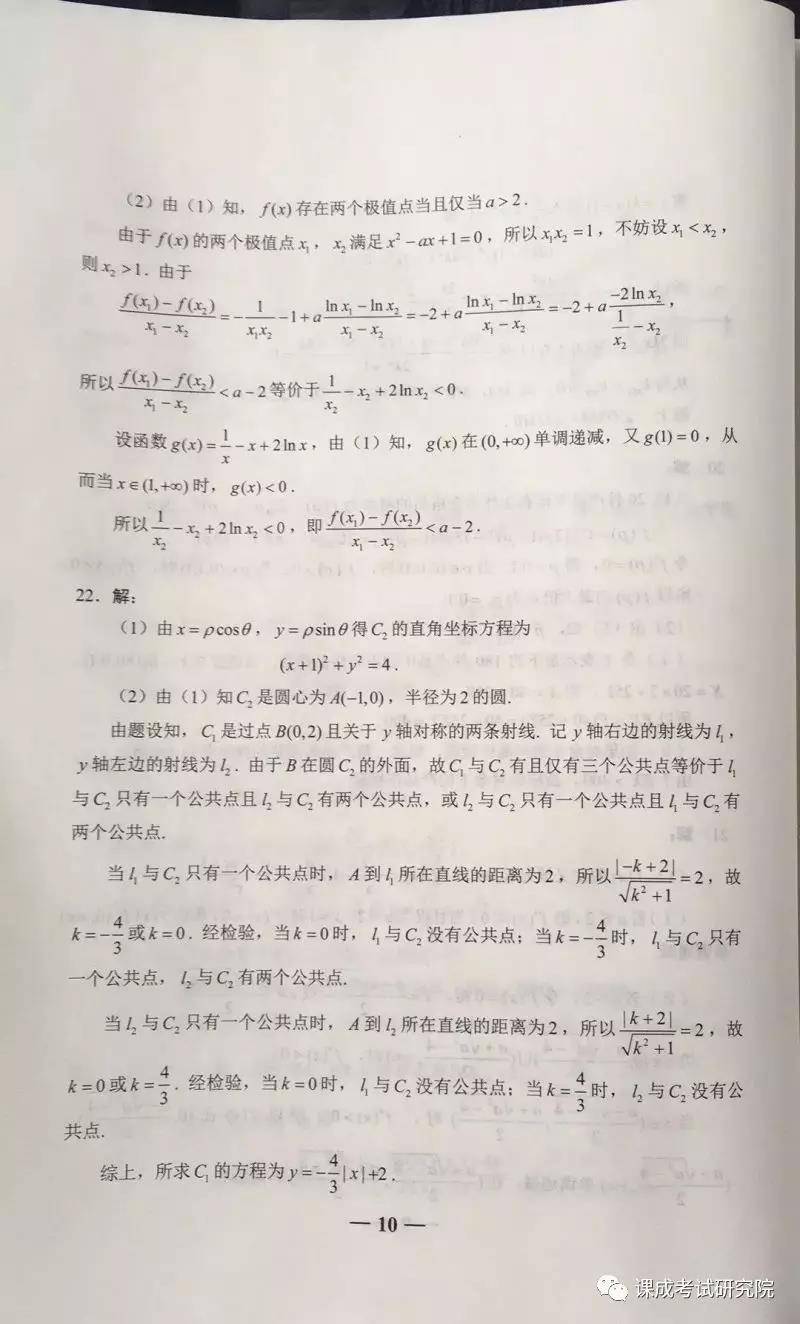 （2）由（1）知，f(x)存在两个极值点当且仅当a＞2．
由于f(x)的两个极值点x₁，x₂满足x²－ax＋1＝0，所以x₁x₂＝1，不妨设x₁＜x₂，
则x₂＞1．由于
\frac{f(x₁)－f(x₂)}{x₁－x₂}＝－\frac{1}{x₁x₂}－1＋a\frac{ln x₁－ln x₂}{x₁－x₂}＝－2＋a\frac{ln x₁－ln x₂}{x₁－x₂}＝－2＋a\frac{－2ln x₂}{\frac{1}{x₂}－x₂}，
所以\frac{f(x₁)－f(x₂)}{x₁－x₂}＜a－2等价于\frac{1}{x₂}－x₂＋2ln x₂＜0．
设函数g(x)＝\frac{1}{x}－x＋2ln x，由（1）知，g(x)在(0,+∞)单调递减，又g(1)＝0，从
而当x∈(1,+∞)时，g(x)＜0．
所以\frac{1}{x₂}－x₂＋2ln x₂＜0，即\frac{f(x₁)－f(x₂)}{x₁－x₂}＜a－2．
22．解：
（1）由x＝ρcosθ，y＝ρsinθ得C₂的直角坐标方程为
(x＋1)²＋y²＝4．
（2）由（1）知C₂是圆心为A(－1,0)，半径为2的圆.
由题设知，C₁是过点B(0,2)且关于y轴对称的两条射线. 记y轴右边的射线为l₁，
y轴左边的射线为l₂．由于B在圆C₂的外面，故C₁与C₂有且仅有三个公共点等价于l₁
与C₂只有一个公共点且l₂与C₂有两个公共点，或l₂与C₂只有一个公共点且l₁与C₂有
两个公共点.
当l₁与C₂只有一个公共点时，A到l₁所在直线的距离为2，所以\frac{|－k＋2|}{\sqrt{k²＋1}}＝2，故
k＝－\frac{4}{3}或k＝0．经检验，当k＝0时，l₁与C₂没有公共点；当k＝－\frac{4}{3}时，l₁与C₂只有
一个公共点，l₂与C₂有两个公共点.
当l₂与C₂只有一个公共点时，A到l₂所在直线的距离为2，所以\frac{|k＋2|}{\sqrt{k²＋1}}＝2，故
k＝0或k＝\frac{4}{3}．经检验，当k＝0时，l₁与C₂没有公共点；当k＝\frac{4}{3}时，l₂与C₂没有公
共点.
综上，所求C₁的方程为y＝－\frac{4}{3}|x|＋2．
— 10 —
课成考试研究院